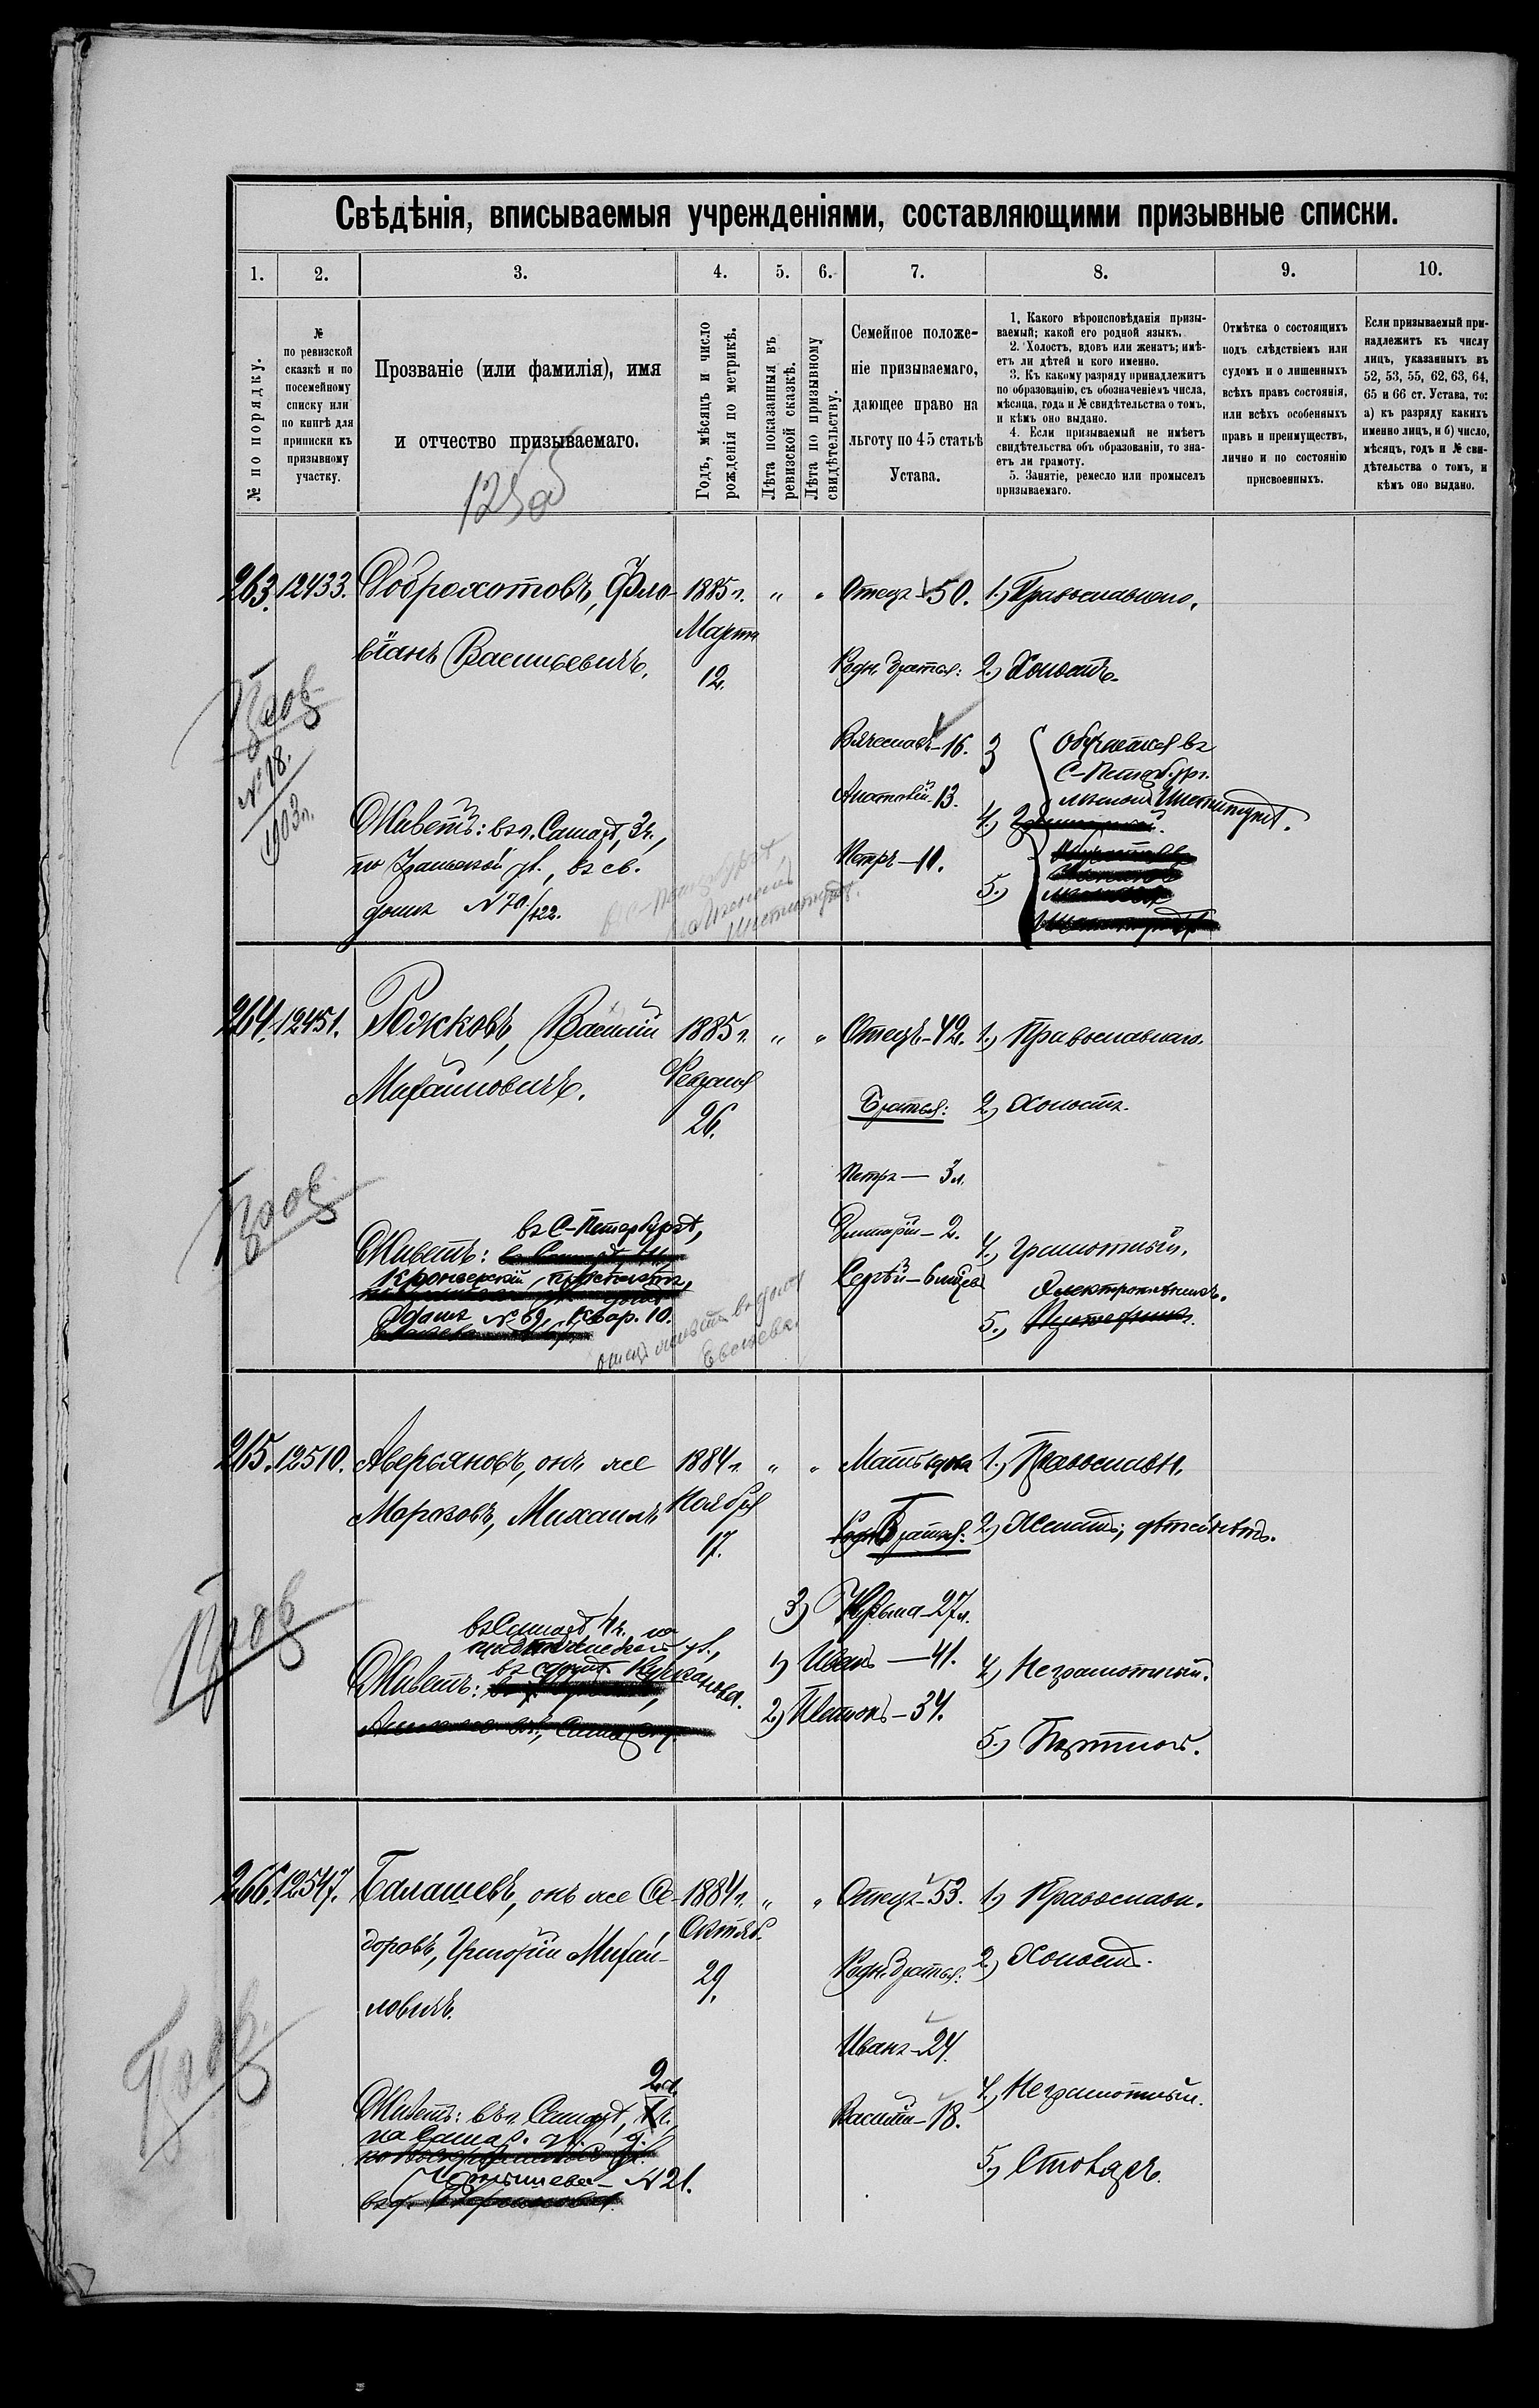 Свѣдѣнія, вписываемыя учрежденіями, составляющими призывные списки.
1. 2. 3. 4. 5. 6. 7. 8. 9. 10.
№ по порядку.
№
по ревизской
сказкѣ и по
посемейному
списку или
по книгѣ для
приписки къ
призывному
участку.
Прозваніе (или фамилія), имя
и отчество призываемаго.
Годъ, мѣсяцъ и число
рожденія по метрикѣ.
Лѣта показанныя въ
ревизской сказкѣ.
Лѣта по призывному
свидѣтельству.
Семейное положе-
ніе призываемаго,
дающее право на
льготу по 45 статьѣ
Устава.
1. Какого вѣроисповѣданія призы-
ваемый; какой его родной языкъ.
2. Холостъ, вдовъ или женатъ; имѣ-
етъ ли дѣтей и кого именно.
3. Къ какому разряду принадлежитъ
по образованію, съ обозначеніемъ числа,
мѣсяца, года и № свидѣтельства о томъ,
и кѣмъ оно выдано.
4. Если призываемый не имѣетъ
свидѣтельства объ образованіи, то зна-
етъ ли грамоту.
5. Занятіе, ремесло или промыселъ
призываемаго.
Отмѣтка о состоящихъ
подъ слѣдствіемъ или
судомъ и о лишенныхъ
всѣхъ правъ состоянія,
или всѣхъ особенныхъ
правъ и преимуществъ,
лично и по состоянію
присвоенныхъ.
Если призываемый при-
надлежитъ къ числу
лицъ, указанныхъ въ
52, 53, 55, 62, 63, 64,
65 и 66 ст. Устава, то:
а) къ разряду какихъ
именно лицъ, и б) число,
мѣсяцъ, годъ и № сви-
дѣтельства о томъ, и
кѣмъ оно выдано.
263. 12433. Доброхотовъ, Фло-
віанъ Васильевичъ.
1885 г.
Марта
12.
" "
Отецъ - 50.
Родн. братья:
Вячеславъ - 16.
Анатолій - 13.
Петръ - 11.
1.) Православнаго.
2.) Холостъ.
3 Обучается въ
С-Петербург.
Институт.
4.)
5.)
№ 18.
1903 г.
Живетъ: въ г. Самарѣ, 3 ч.,
по Уральской ул., въ св.
домѣ № 70/122.
въ С-Петербургѣ
Институтѣ.
264. 12451. Рожковъ, Василій
Михайловичъ.
1885 г.
Февраля
26.
" "
Отецъ - 42.
Братья:
Петръ — 3 л.
Димитрій - 2.
Сергѣй - 6 мѣсяц.
1.) Православнаго.
2.) Холостъ.
4.) Грамотный.
Электротехникъ.
5.)
въ С-Петербургѣ,
Живетъ:
Кронверскій проспектъ,
домъ № 69, квар. 10.
265. 12510. Аверьяновъ, онъ же
Морозовъ, Михаилъ
1884 г.
Ноября
17.
" "
Мать вдова
Родн. Братья:
3) Кузьма - 27 л.
1) Иванъ — 41.
2) - 34.
1.) Православн.
2.) Женатъ; дѣтей нѣтъ.
4.) Неграмотный.
5.) Портной.
въ Самарѣ 4 ч. по
ул.,
въ домѣ
Живетъ:
266. 12547. Балашевъ, онъ же Се-
доровъ, Григорій Михай-
ловичъ.
1884 г.
Октяб.
29.
" "
Отецъ - 53.
Родн. братья:
Иванъ - 24.
Василій - 18.
1.) Православн.
2.) Холостъ.
4.) Неграмотный.
5.) Столяръ.
2 ч.
Живетъ: въ г. Самарѣ,
на Самар. ул. д.
№ 21.